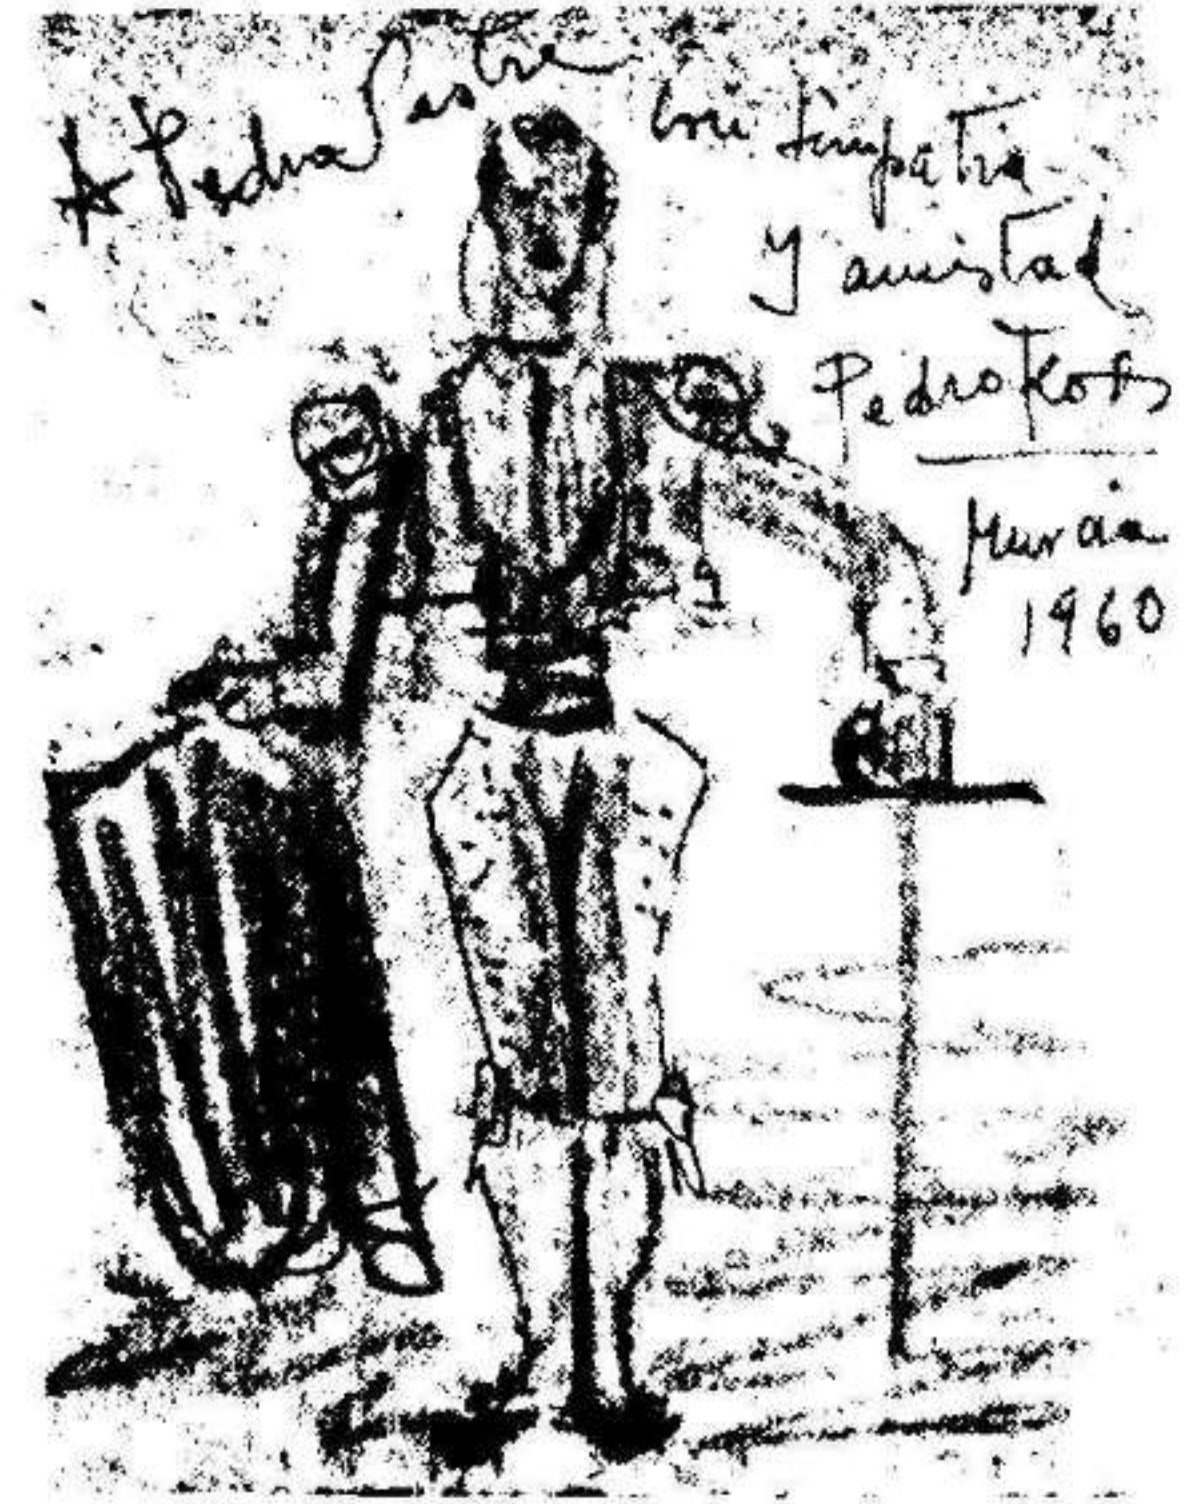 A Pedro Sastre con simpatía
Y amistad
Pedro
Murcia
1960